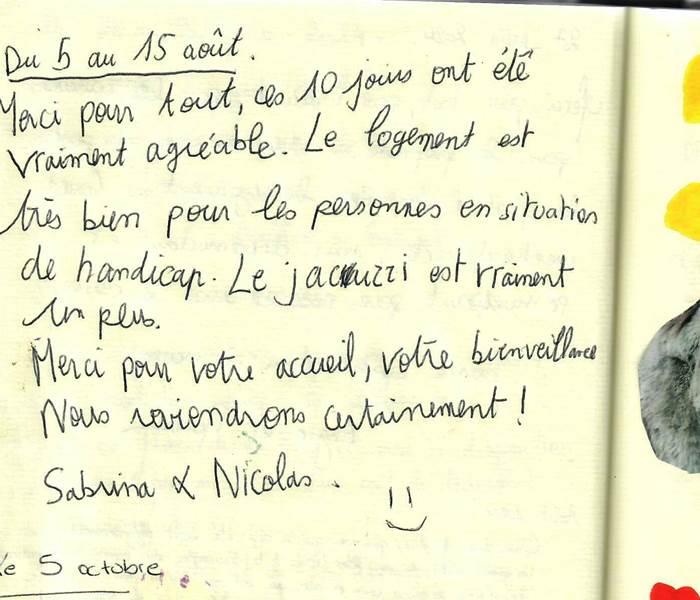 Du 5 au 15 août.
Merci pour tout, ces 10 jours ont été
vraiment agréable. Le logement est
très bien pour les personnes en situation
de handicap. Le jacuzzi est vraiment
un plus.
Merci pour votre accueil, votre bienveillance
Nous reviendrons certainement !
Sabrina & Nicolas.
le 5 octobre